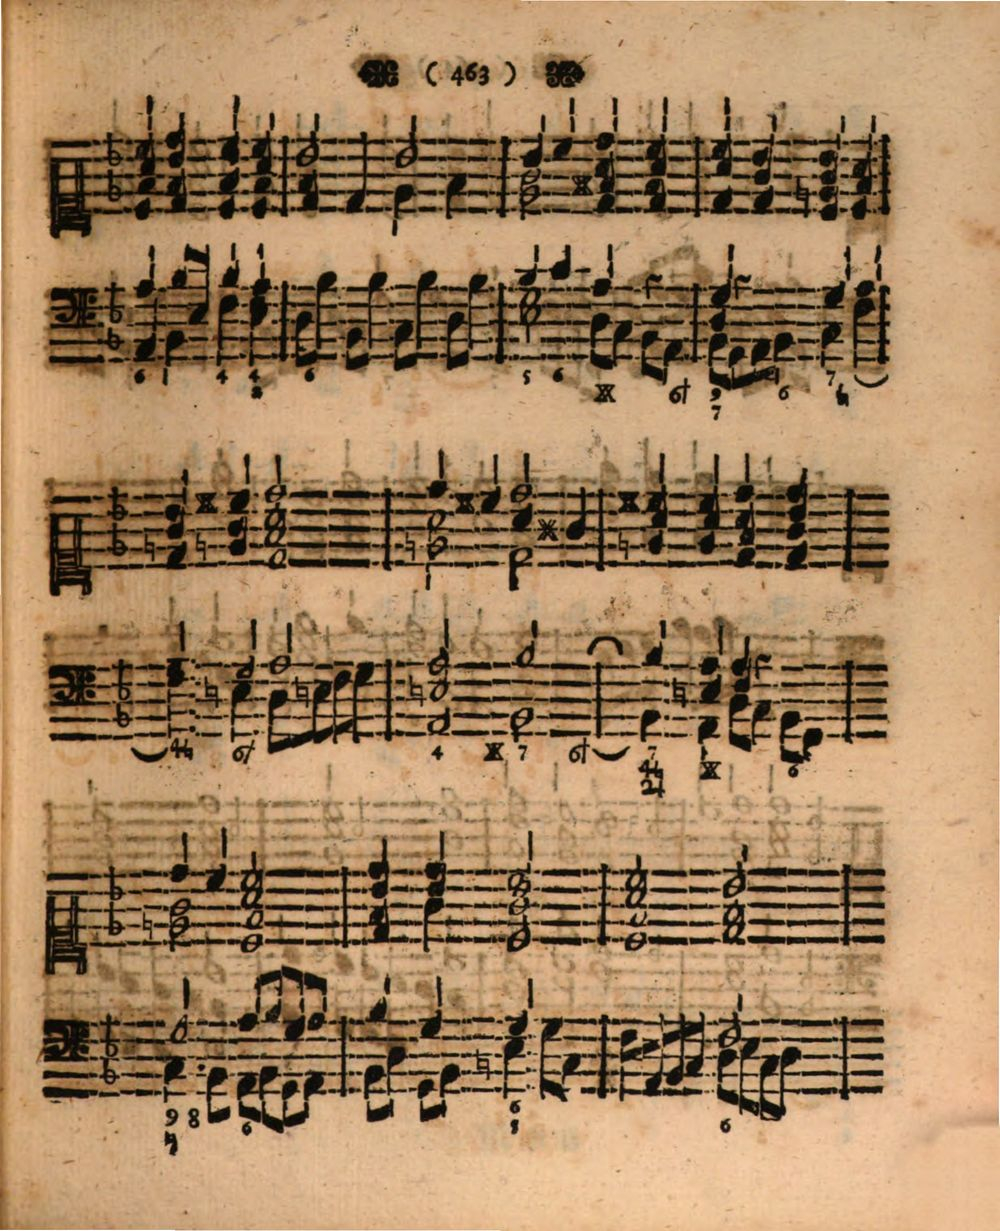 ( 463 )
6 4 4 6 5 6 6† 9 6 7
2 7
4♮ 6† 4 7 6† 7 6
4♮
2
9 8 6 6 6
7 5